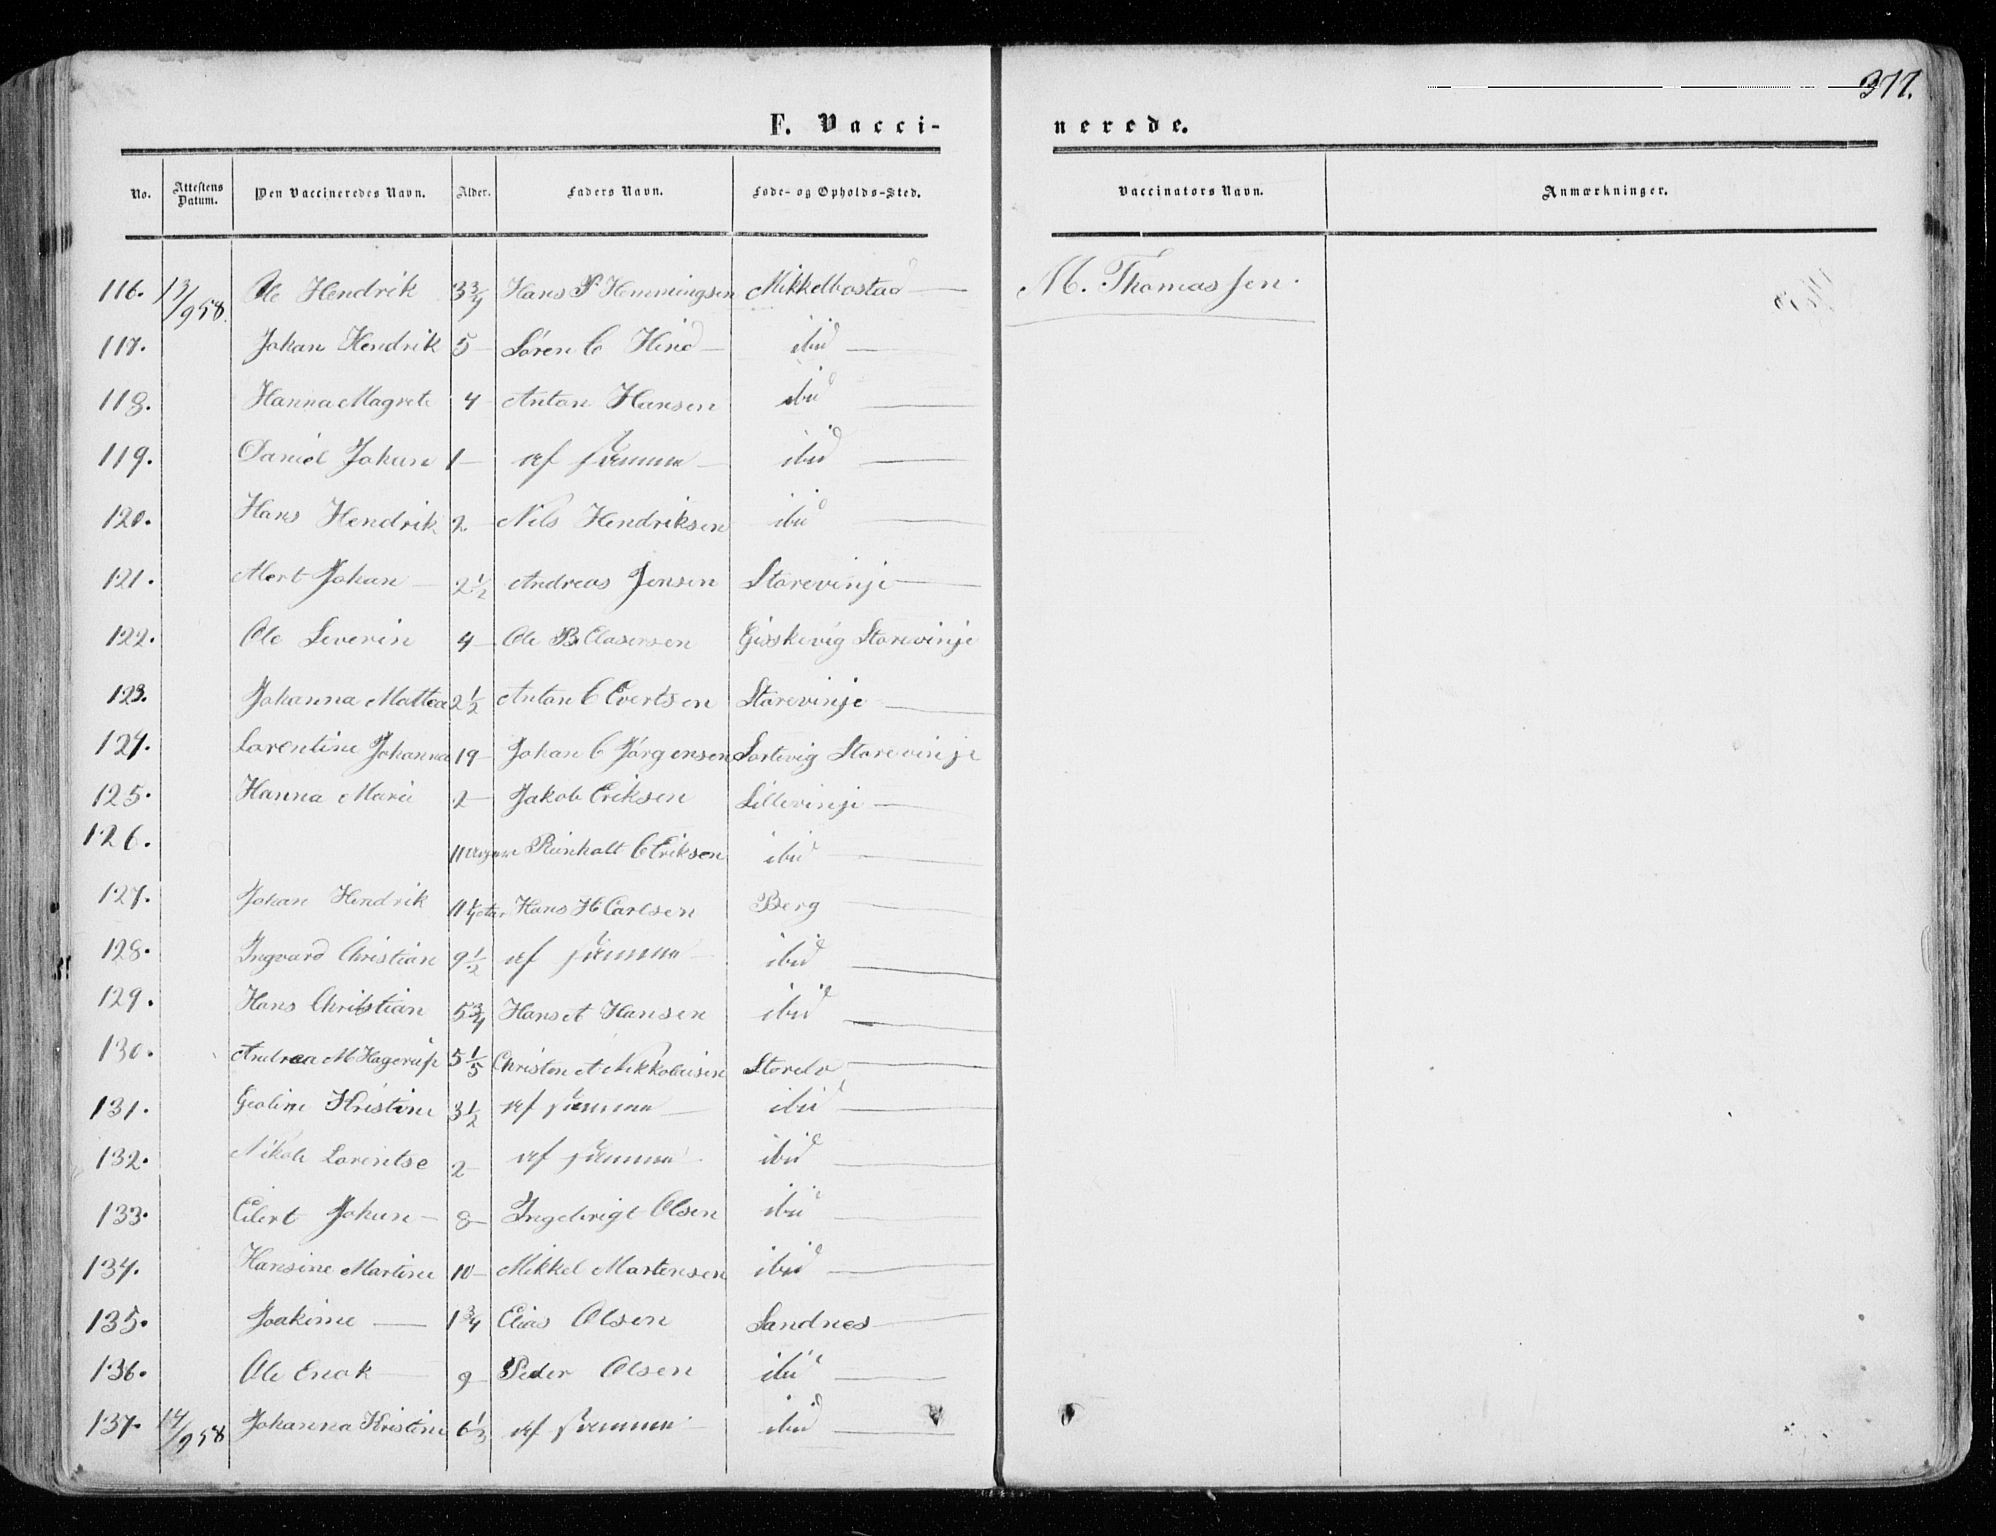 377.
F. Vacci-
nerede.
No. Attestens Datum. Den Vaccineredes Navn. Alder. Faders Navn. Føde- og Opholds-Sted. Vaccinators Navn. Anmærkninger.
116. 13/9 58. Ole Hendrik 3 3/4 Hans P Hemmingsen Mikkelbostad M. Thomassen.
117. Johan Hendrik 5 Sören C Hind ibid
118. Hanna Magrete 4 Anton Hansen ibid
119. Daniel Johan 1 ibid
120. Hans Hendrik 2 Nils Hendriksen ibid
121. Mert Johan 2 1/2 Andreas Jensen Storevinje
122. Ole Severin 4 Ole B Clasersen Gisskevig Storevinje
123. Johanna Mattea 2 1/2 Anton C Evertsen Storevinje
124. Lorentine Johanna 19 Johan C Jörgensen Sortevig Storevinje
125. Hanna Marie 2 Jakob Eriksen Lillevinje
126. 11 Reinholt C Eriksen ibid
127. Johan Hendrik 11 1/4 Hans H Carlsen Berg
128. Ingvard Christian 9 1/2 ibid
129. Hans Christian 5 3/4 Hans A Hansen ibid
130. Andrea M Hagerup 5 1/5 Christen A Nikkolaisen
131. Gjoline Kristine 3 1/2 ibid
132. Nikoli Lorentse 2 ibid
133. Eilert Johan 8 Ingebrigt Olsen ibid
134. Hansine Martine 10 Mikkel Martensen ibid
135. Joakime 1 3/4 Elias Olsen Sandnes
136. Ole Enok 9 Peder Olsen ibid
137. 14/9 58 Johanna Kristine 6 1/3 ibid